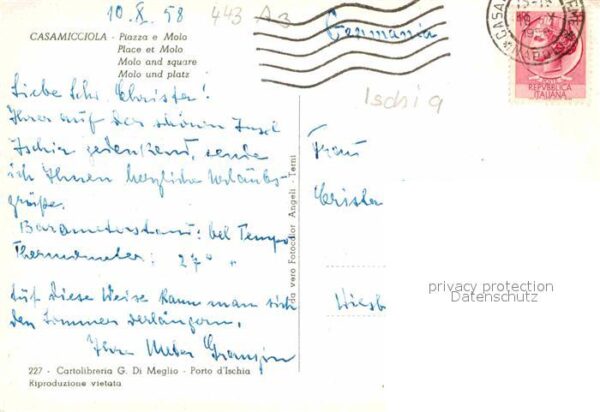 10. X. 58
443 A 3
CASAMICCIOLA - Piazza e Molo
Place et Molo
Molo and square
Molo und platz
Germania
CASAM
TERME
REPVBBLICA
ITALIANA
Ischia
Liebe Schw. Christa!
Ihrer auf der schönen Insel
Ischia gedenkend, sende
ich Ihnen herzliche Urlaubs-
grüße.
Barometerstand: bel Tempo
Thermometer: 27° "
Auf diese Weise kann man sich
den Sommer verlängern.
Ihre
Frau
Christa
Wiesb
privacy protection
Datenschutz
da vero Fotocolor Angeli - Terni
227 - Cartolibreria G. Di Meglio - Porto d'Ischia
Riproduzione vietata